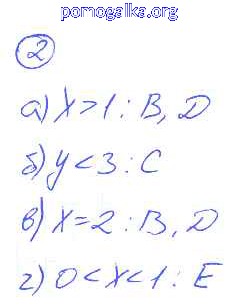 pomogalka.org
2
а) x > 1 : B, D
б) y < 3 : C
в) x = 2 : B, D
г) 0 < x < 1 : E